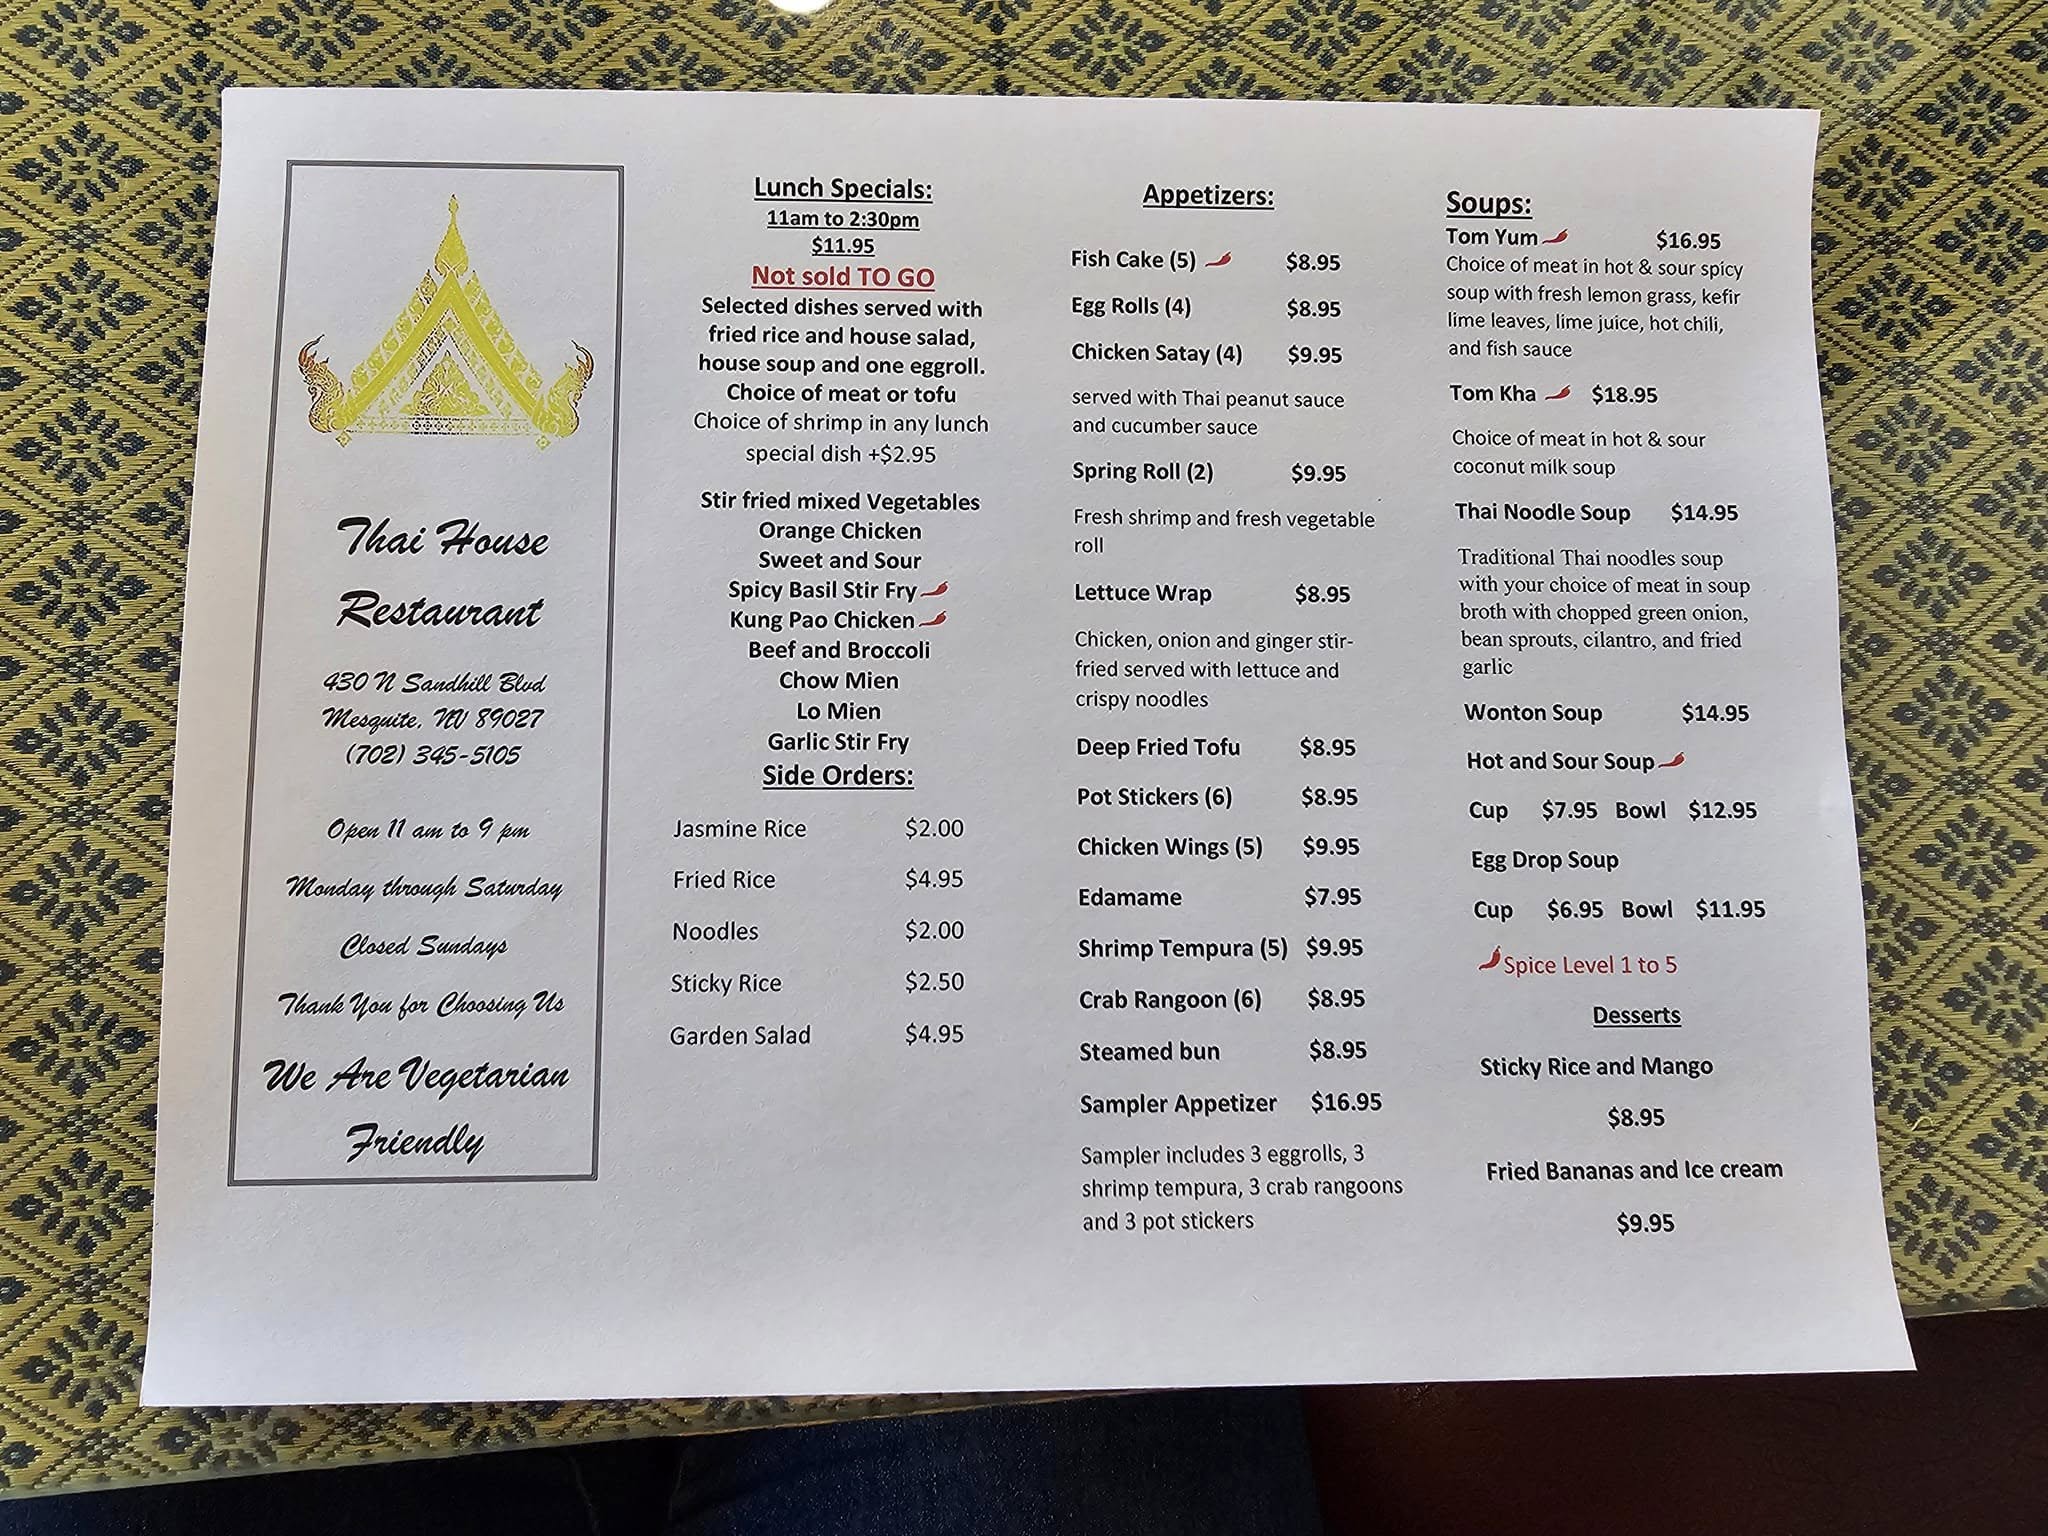 Thai House
Restaurant
430 N Sandhill Blvd
Mesquite, NV 89027
(702) 345-5105
Open 11 am to 9 pm
Monday through Saturday
Closed Sundays
Thank You for Choosing Us
We Are Vegetarian
Friendly
Lunch Specials:
11am to 2:30pm
$11.95
Not sold TO GO
Selected dishes served with
fried rice and house salad,
house soup and one eggroll.
Choice of meat or tofu
Choice of shrimp in any lunch
special dish +$2.95
Stir fried mixed Vegetables
Orange Chicken
Sweet and Sour
Spicy Basil Stir Fry
Kung Pao Chicken
Beef and Broccoli
Chow Mien
Lo Mien
Garlic Stir Fry
Side Orders:
Jasmine Rice $2.00
Fried Rice $4.95
Noodles $2.00
Sticky Rice $2.50
Garden Salad $4.95
Appetizers:
Fish Cake (5) $8.95
Egg Rolls (4) $8.95
Chicken Satay (4) $9.95
served with Thai peanut sauce
and cucumber sauce
Spring Roll (2) $9.95
Fresh shrimp and fresh vegetable
roll
Lettuce Wrap $8.95
Chicken, onion and ginger stir-
fried served with lettuce and
crispy noodles
Deep Fried Tofu $8.95
Pot Stickers (6) $8.95
Chicken Wings (5) $9.95
Edamame $7.95
Shrimp Tempura (5) $9.95
Crab Rangoon (6) $8.95
Steamed bun $8.95
Sampler Appetizer $16.95
Sampler includes 3 eggrolls, 3
shrimp tempura, 3 crab rangoons
and 3 pot stickers
Soups:
Tom Yum $16.95
Choice of meat in hot & sour spicy
soup with fresh lemon grass, kefir
lime leaves, lime juice, hot chili,
and fish sauce
Tom Kha $18.95
Choice of meat in hot & sour
coconut milk soup
Thai Noodle Soup $14.95
Traditional Thai noodles soup
with your choice of meat in soup
broth with chopped green onion,
bean sprouts, cilantro, and fried
garlic
Wonton Soup $14.95
Hot and Sour Soup
Cup $7.95 Bowl $12.95
Egg Drop Soup
Cup $6.95 Bowl $11.95
Spice Level 1 to 5
Desserts
Sticky Rice and Mango
$8.95
Fried Bananas and Ice cream
$9.95